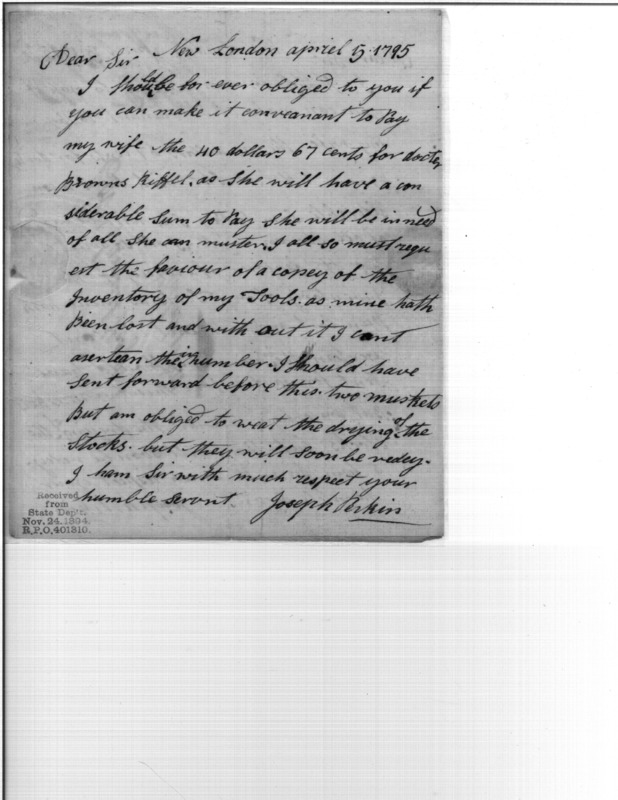 Dear Sir New London apriel 5 1795
I should be for ever obliged to you if
you can make it conveanant to Pay
my wife the 40 dollars 67 cents for docter
Browns Riffel. as She will have a con
siderable Sum to Pay She will be in need
of all She can muster. I all so must requ
est the faviour of a copey of the
Inventory of my Tools. as mine hath
Been lost and with out it I cant
asertean their number. I Should have
Sent forward before this. two muskets
But am obliged to weat the drying of the
Stocks. but they will soon be redey.
I ham Sir with much respect your
humble servant. Joseph Perkin
Received
from
State Dep't.
Nov. 24. 1894.
R.P.O. 401310.